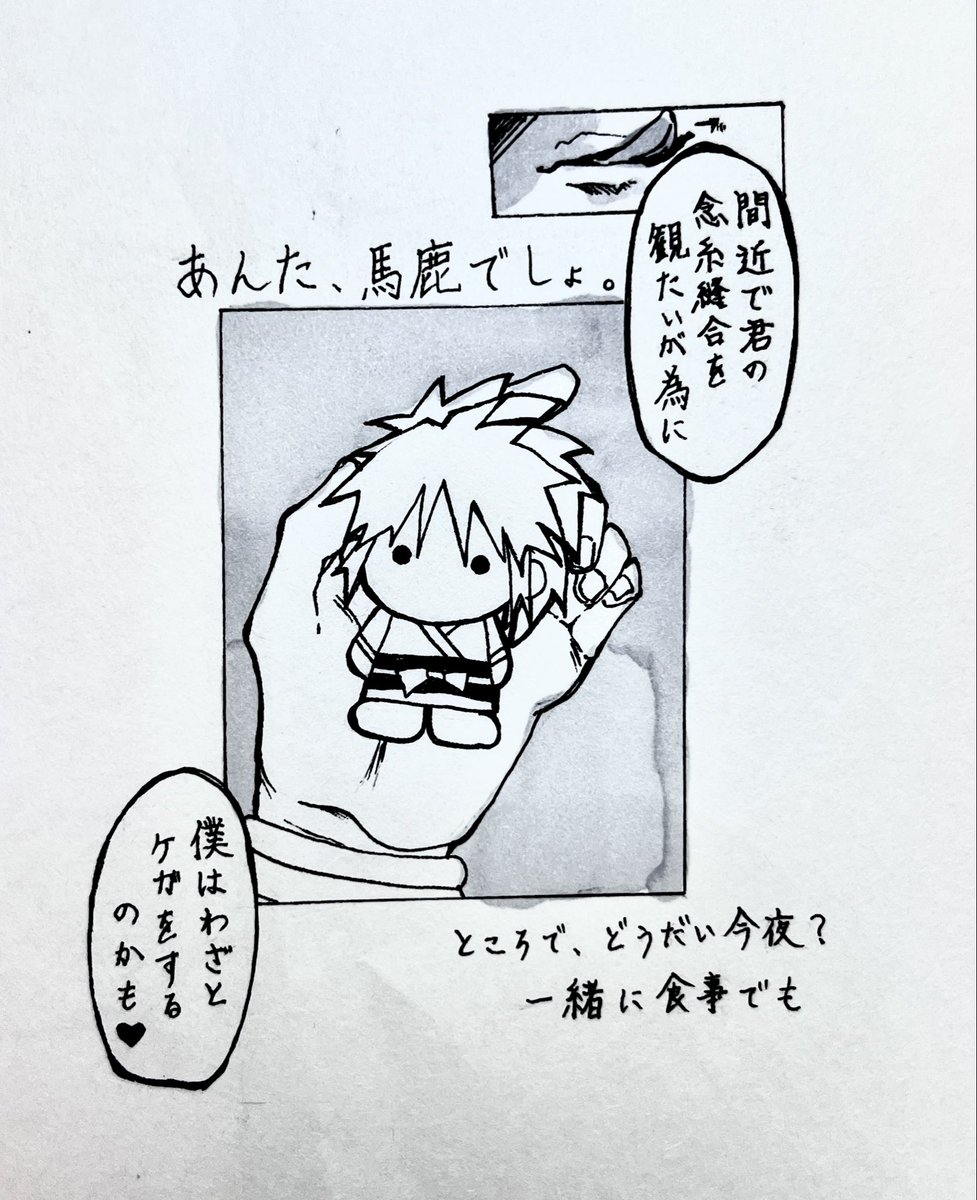 間近で君の
念糸縫合を
観たいが為に
あんた、馬鹿でしょ。
僕はわざと
ケガをする
のかも♥
ところで、どうだい今夜？
一緒に食事でも